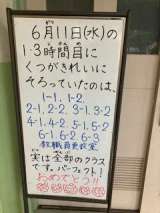 6月11日(水)の
1・3時間目に
くつがきれいに
そろっていたのは、
1-1、1-2、
2-1、2-2、3-1、3-2
4-1、4-2、5-1、5-2
6-1、6-2、6-3
教職員更衣室
実は全部のクラス
です。パーフェクト!
おめでとう!!